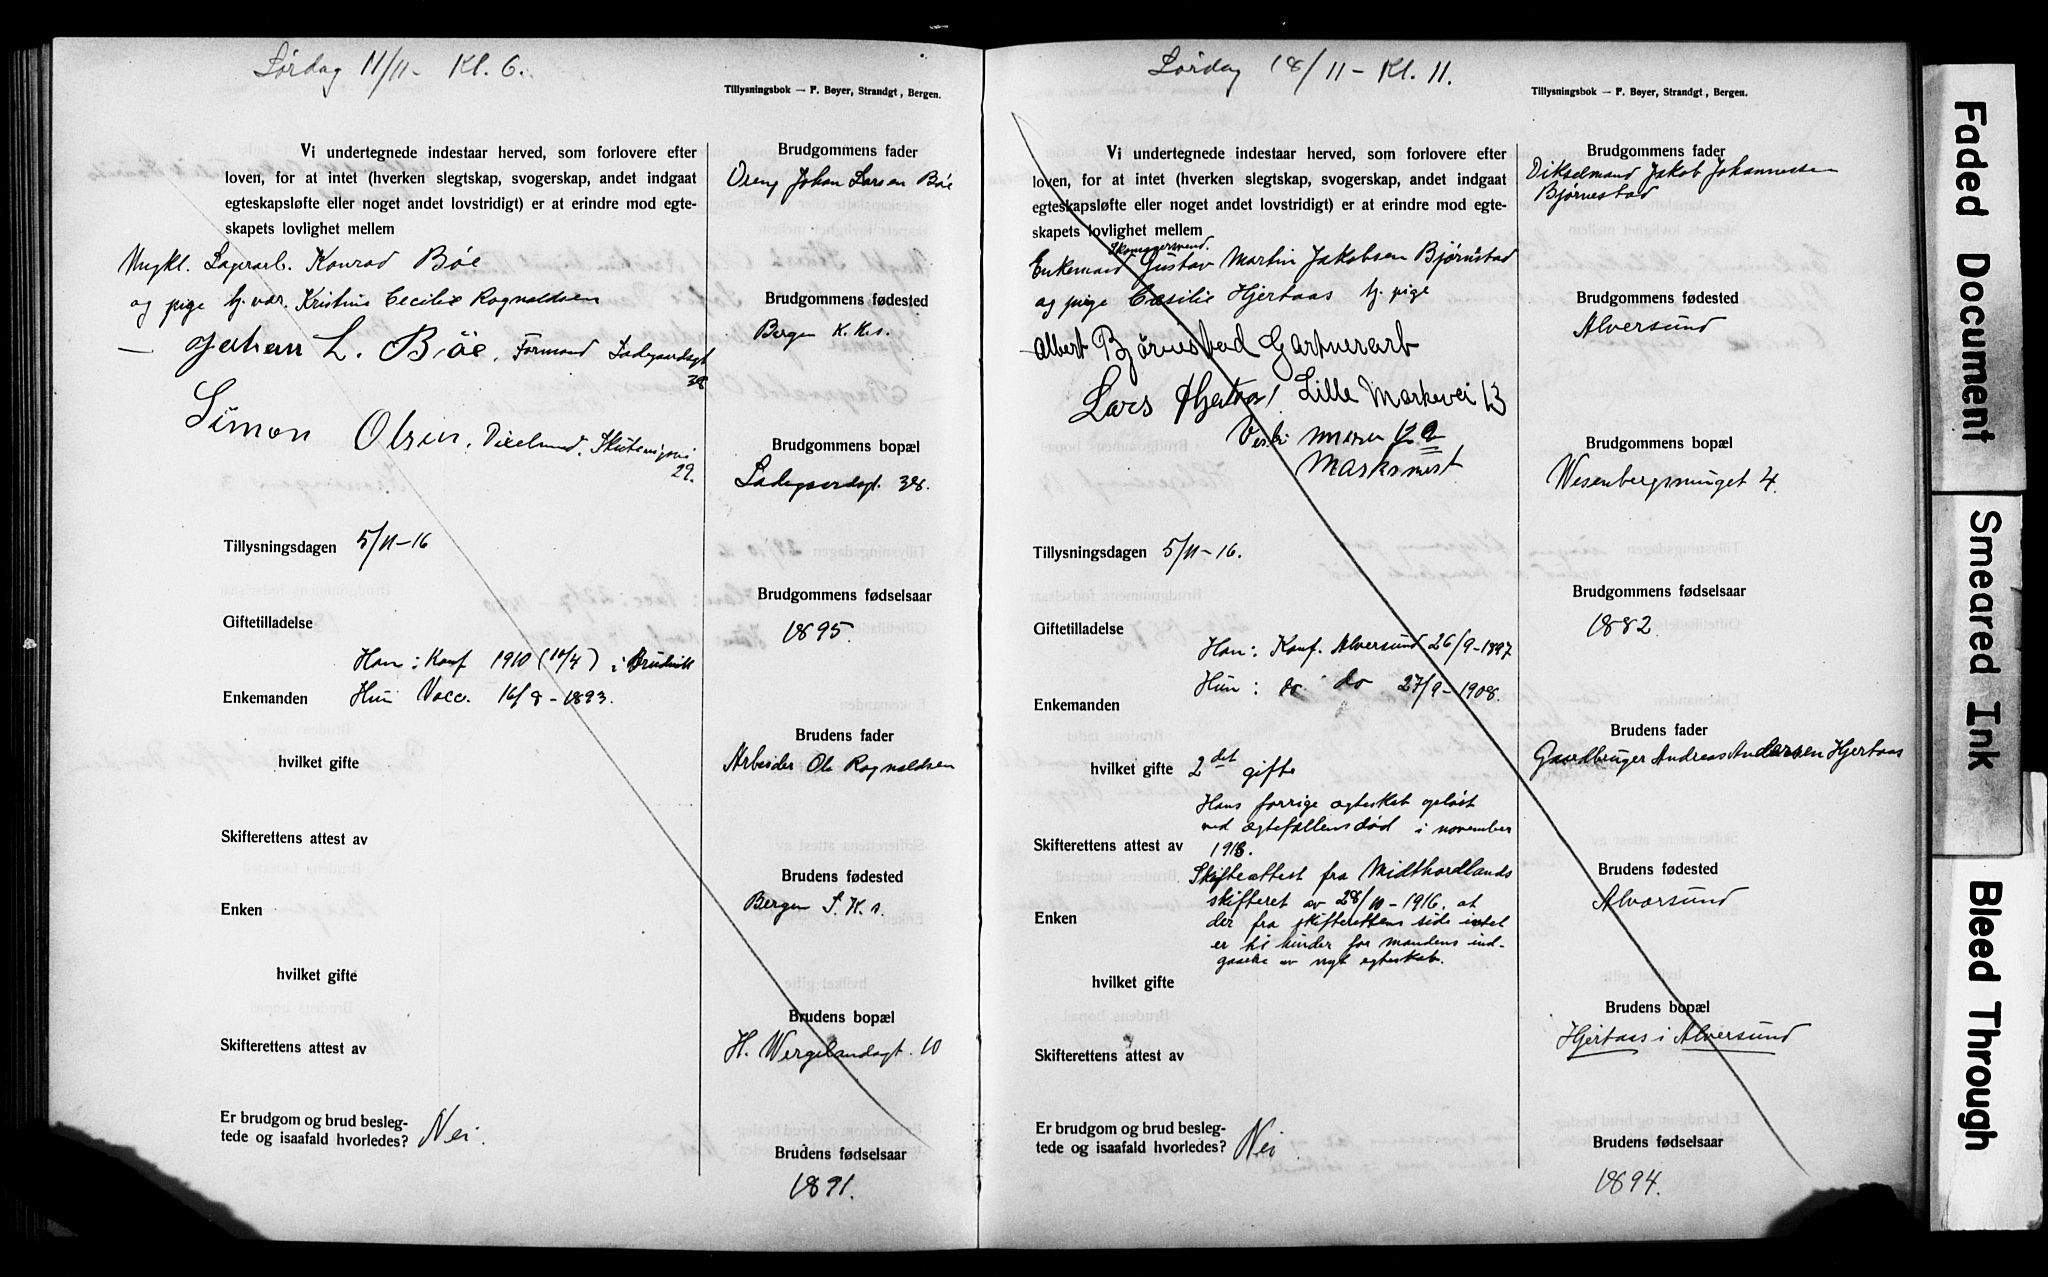 Lørdag 11/11 - Kl. 6.
Tillysningsbok — F. Beyer, Strandgt, Bergen.
Vi undertegnede indestaar herved, som forlovere efter
loven, for at intet (hverken slegtskap, svogerskap, andet indgaat
egteskapsløfte eller noget andet lovstridigt) er at erindre mod egte-
skapets lovlighet mellem
Ungkl. Lagerarb. Konrad Bøe
og pige hj.vær. Kristine Cecilie Rognaldsen
Johan L. Bøe, Formand Ladegaardsgt
38
Simon Olsen, Dixelmd. Skuteviksvei
29.
Tillysningsdagen 5/11-16
Giftetilladelse
Han: Konf 1910 (10/4) i Bruvik
Enkemanden Hun Vacc. 16/8-1893.
hvilket gifte
Skifterettens attest av
Enken
hvilket gifte
Skifterettens attest av
Er brudgom og brud besleg-
tede og isaafald hvorledes? Nei.
Brudgommens fader
Dreng Johan Larsen Bøe
Brudgommens fødested
Bergen K. Ks.
Brudgommens bopæl
Ladegaardsgt. 38.
Brudgommens fødselsaar
1895.
Brudens fader
Arbeider Ole Rognaldsen
Brudens fødested
Bergen S. K. s.
Brudens bopæl
H. Wergelandsgt. 10
Brudens fødselsaar
1891.
Lørdag 18/11 - Kl. 11.
Tillysningsbok — F. Beyer, Strandgt, Bergen.
Vi undertegnede indestaar herved, som forlovere efter
loven, for at intet (hverken slegtskap, svogerskap, andet indgaat
egteskapsløfte eller noget andet lovstridigt) er at erindre mod egte-
skapets lovlighet mellem
Skomagersvend.
Enkemand Gustav Martin Jakobsen Bjørnstad
og pige Cæsilie Hjertaas hj. pige
Albert Bjørnestad Gartnerarb
Lars Hjertaas Lille Markevei 13
12 a
Tillysningsdagen 5/11-16.
Giftetilladelse
Han: Konf. Alversund 26/9-1897
Hun: do do 27/9-1908.
Enkemanden
hvilket gifte 2det gifte
Hans forrige ægteskab opløst
ved ægtefællens død i november
Skifterettens attest av 1913.
Skifteattest fra Midthordlands
skifteret av 28/10-1916. at
Enken der fra skifterettens side intet
er til hinder for mandens ind-
gaaelse av nyt egteskab.
hvilket gifte
Skifterettens attest av
Er brudgom og brud besleg-
tede og isaafald hvorledes? Nei
Brudgommens fader
Dikselmand Jakob Johannessen
Bjørnestad
Brudgommens fødested
Alversund
Brudgommens bopæl
Wesenbergsmuget 4.
Brudgommens fødselsaar
1882
Brudens fader
Gaardbruger Andreas Andersen Hjertaas
Brudens fødested
Alversund
Brudens bopæl
Hjertaas i Alversund
Brudens fødselsaar
1894.
Faded Document
Smeared Ink
Bleed Through